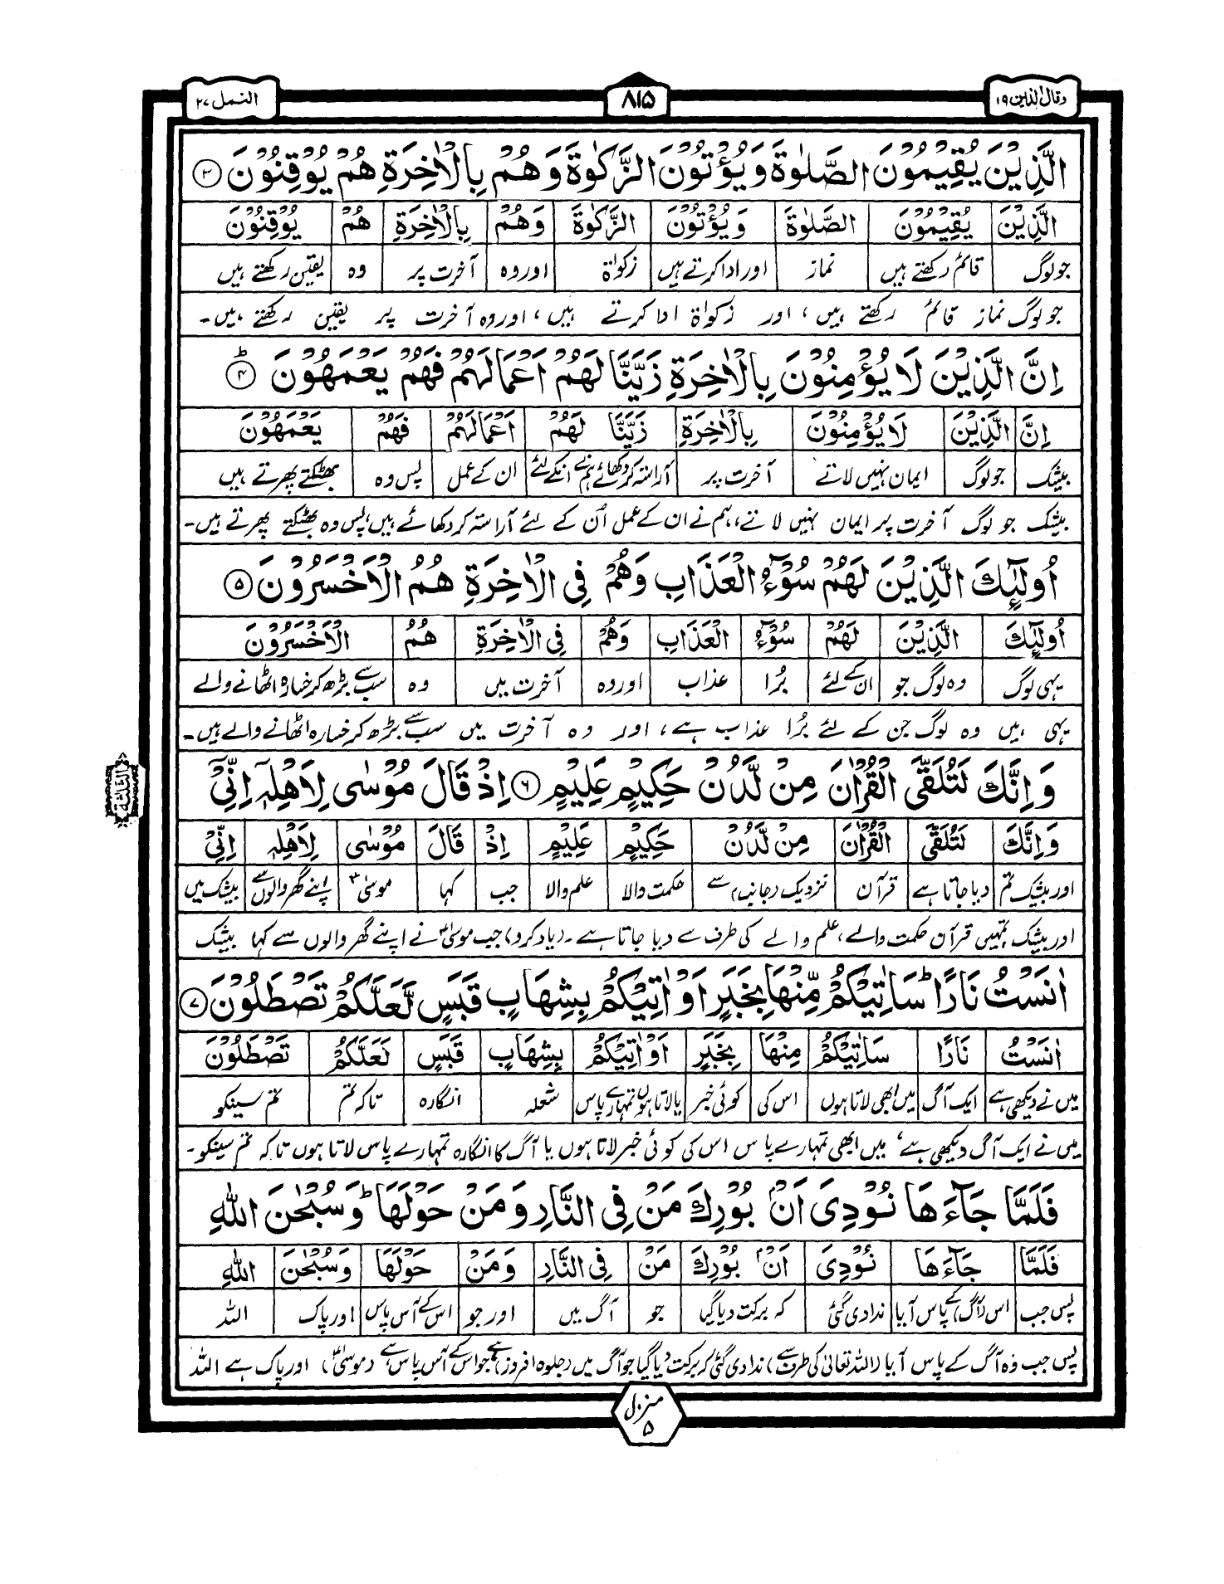 وقال الذین ۱۹
۸۱۵
النمل ۲۷
الَّذِیْنَ یُقِیْمُوْنَ الصَّلٰوةَ وَیُؤْتُوْنَ الزَّكٰوةَ وَهُمْ بِالْاٰخِرَةِ هُمْ یُوْقِنُوْنَ ۳
الَّذِیْنَ یُقِیْمُوْنَ الصَّلٰوةَ وَیُؤْتُوْنَ الزَّكٰوةَ وَهُمْ بِالْاٰخِرَةِ هُمْ یُوْقِنُوْنَ
جو لوگ قائم رکھتے ہیں نماز اور ادا کرتے ہیں زکوٰۃ اور وہ آخرت پر وہ یقین رکھتے ہیں
جو لوگ نماز قائم رکھتے ہیں، اور زکوٰۃ ادا کرتے ہیں، اور وہ آخرت پر یقین رکھتے ہیں۔
اِنَّ الَّذِیْنَ لَا یُؤْمِنُوْنَ بِالْاٰخِرَةِ زَیَّنَّا لَهُمْ اَعْمَالَهُمْ فَهُمْ یَعْمَهُوْنَ ؕ ۴
اِنَّ الَّذِیْنَ لَا یُؤْمِنُوْنَ بِالْاٰخِرَةِ زَیَّنَّا لَهُمْ اَعْمَالَهُمْ فَهُمْ یَعْمَهُوْنَ
بیشک جو لوگ ایمان نہیں لاتے آخرت پر آراستہ کر دکھائے ہم نے انکے لئے ان کے عمل پس وہ بھٹکتے پھرتے ہیں
بیشک جو لوگ آخرت پر ایمان نہیں لاتے، ہم نے ان کے عمل اُن کے لئے آراستہ کر دکھائے ہیں، پس وہ بھٹکتے پھرتے ہیں۔
اُولٰٓئِكَ الَّذِیْنَ لَهُمْ سُوْٓءُ الْعَذَابِ وَهُمْ فِی الْاٰخِرَةِ هُمُ الْاَخْسَرُوْنَ ۵
اُولٰٓئِكَ الَّذِیْنَ لَهُمْ سُوْٓءُ الْعَذَابِ وَهُمْ فِی الْاٰخِرَةِ هُمُ الْاَخْسَرُوْنَ
یہی لوگ وہ لوگ جو ان کے لئے بُرا عذاب اور وہ آخرت میں وہ سب سے بڑھ کر خسارہ اٹھانے والے
یہی ہیں وہ لوگ جن کے لئے بُرا عذاب ہے، اور وہ آخرت میں سب سے بڑھ کر خسارہ اٹھانے والے ہیں۔
وَاِنَّكَ لَتُلَقَّی الْقُرْاٰنَ مِنْ لَّدُنْ حَكِیْمٍ عَلِیْمٍ ۶ اِذْ قَالَ مُوْسٰی لِاَهْلِهٖۤ اِنِّیْۤ
الثلثة
وَاِنَّكَ لَتُلَقَّی الْقُرْاٰنَ مِنْ لَّدُنْ حَكِیْمٍ عَلِیْمٍ اِذْ قَالَ مُوْسٰی لِاَهْلِهٖۤ اِنِّیْۤ
اور بیشک تم دیا جاتا ہے قرآن نزدیک (جانب) سے حکمت والا علم والا جب کہا موسیٰ اپنے گھر والوں سے بیشک میں
اور بیشک تمہیں قرآن حکمت والے، علم والے کی طرف سے دیا جاتا ہے۔ (یاد کرو) جب موسیٰ نے اپنے گھر والوں سے کہا بیشک
اٰنَسْتُ نَارًا ؕ سَاٰتِیْكُمْ مِّنْهَا بِخَبَرٍ اَوْ اٰتِیْكُمْ بِشِهَابٍ قَبَسٍ لَّعَلَّكُمْ تَصْطَلُوْنَ ۷
اٰنَسْتُ نَارًا سَاٰتِیْكُمْ مِنْهَا بِخَبَرٍ اَوْ اٰتِیْكُمْ بِشِهَابٍ قَبَسٍ لَعَلَّكُمْ تَصْطَلُوْنَ
میں نے دیکھی ہے ایک آگ میں ابھی لاتا ہوں اس کی کوئی خبر یا لاتا ہوں تمہارے پاس شعلہ انگارہ تاکہ تم تم سینکو
میں نے ایک آگ دیکھی ہے، میں ابھی تمہارے پاس اس کی کوئی خبر لاتا ہوں یا آگ کا انگارہ تمہارے پاس لاتا ہوں تاکہ تم سینکو۔
فَلَمَّا جَآءَهَا نُوْدِیَ اَنْۢ بُوْرِكَ مَنْ فِی النَّارِ وَمَنْ حَوْلَهَا ؕ وَسُبْحٰنَ اللّٰهِ
فَلَمَّا جَآءَهَا نُوْدِیَ اَنْۢ بُوْرِكَ مَنْ فِی النَّارِ وَمَنْ حَوْلَهَا وَسُبْحٰنَ اللّٰهِ
پس جب اس (آگ) کے پاس آیا ندا دی گئی کہ برکت دیا گیا جو آگ میں اور جو اس کے آس پاس اور پاک اللہ
پس جب وہ آگ کے پاس آیا (اللہ تعالیٰ کی طرف سے) ندا دی گئی کہ برکت دیا گیا جو آگ میں (جلوہ افروز) ہے جو اس کے آس پاس ہے (موسیٰ)، اور پاک ہے اللہ
منزل
۵